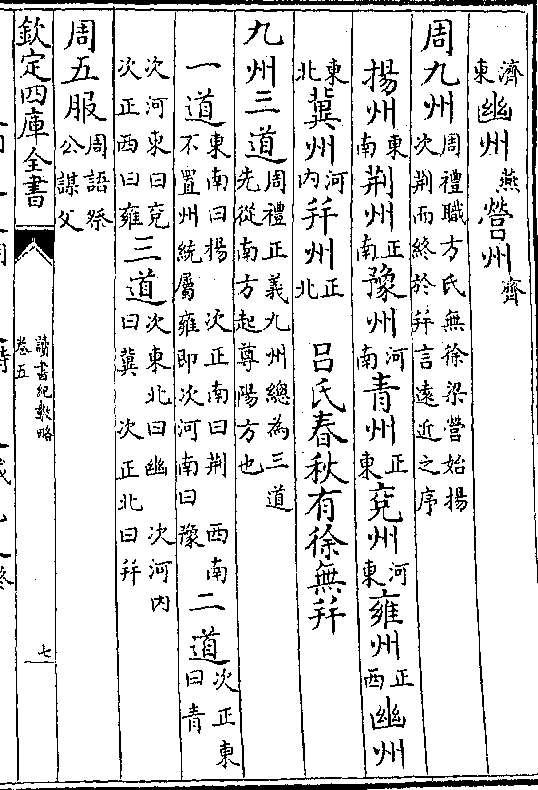 濟東幽州燕營州齊
周九州周禮職方氏無徐梁營始揚次荆而終於幷言遠近之序
揚州東南荆州正南豫州河南青州正東兗州河東雍州正西幽州
東北冀州河内幷州正北 吕氏春秋有徐無幷
九州三道周禮正義九州總為三道先從南方起尊陽方也
一道東南曰揚 次正南曰荆 西南不置州統屬雍即次河南曰豫二道次正東曰青
次河東曰兗次正西曰雍三道次東北曰幽 次河内曰冀 次正北曰幷
周五服周語祭公謀父
欽定四庫全書 讀書紀數略卷五 七